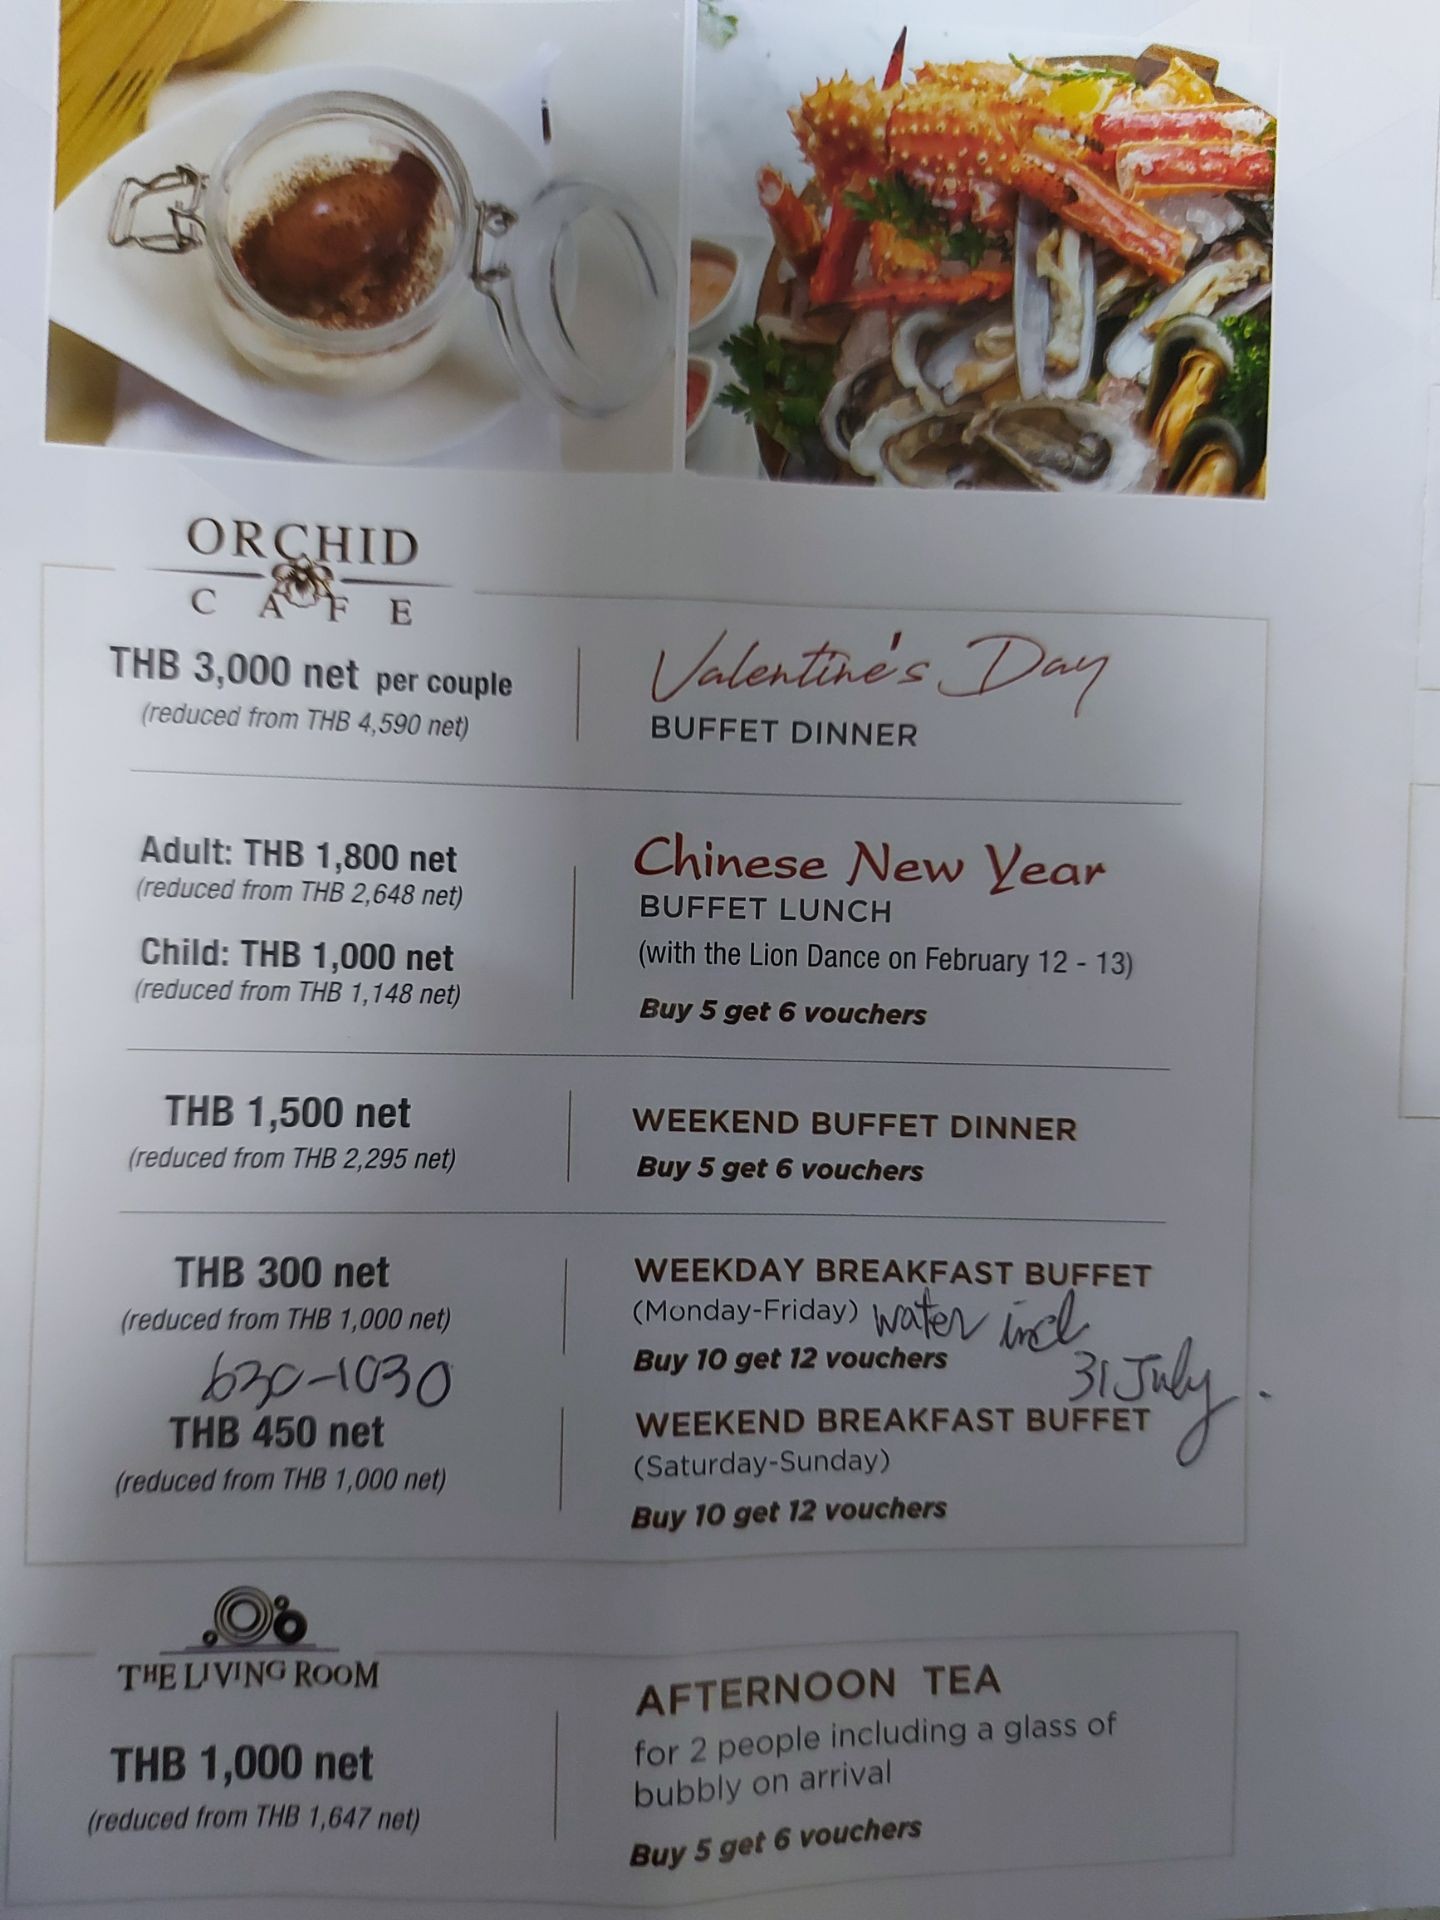 ORCHID
CAFE
THB 3,000 net per couple
(reduced from THB 4,590 net)
Valentine's Day
BUFFET DINNER
Adult: THB 1,800 net
(reduced from THB 2,648 net)
Child: THB 1,000 net
(reduced from THB 1,148 net)
Chinese New Year
BUFFET LUNCH
(with the Lion Dance on February 12 - 13)
Buy 5 get 6 vouchers
THB 1,500 net
(reduced from THB 2,295 net)
WEEKEND BUFFET DINNER
Buy 5 get 6 vouchers
THB 300 net
(reduced from THB 1,000 net)
630-1030
WEEKDAY BREAKFAST BUFFET
(Monday-Friday) water incl
Buy 10 get 12 vouchers
31 July.
THB 450 net
(reduced from THB 1,000 net)
WEEKEND BREAKFAST BUFFET
(Saturday-Sunday)
Buy 10 get 12 vouchers
THE LIVING ROOM
THB 1,000 net
(reduced from THB 1,647 net)
AFTERNOON TEA
for 2 people including a glass of
bubbly on arrival
Buy 5 get 6 vouchers